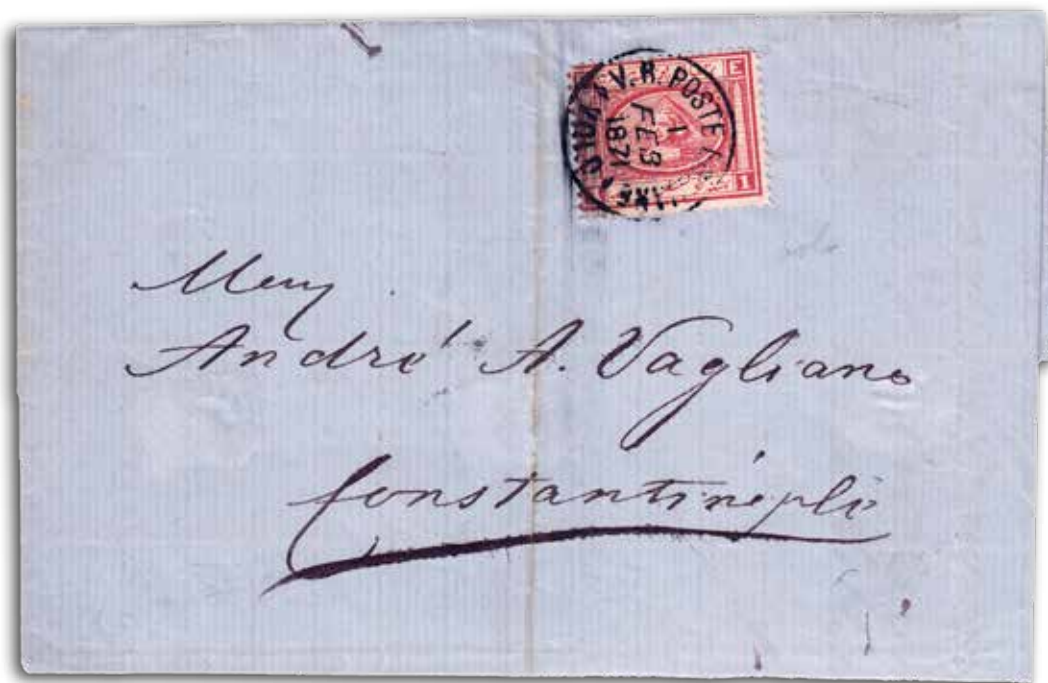 V.R. POSTE
1
FEB
1871
E
1
Mess
André A. Vagliano
Constantinople